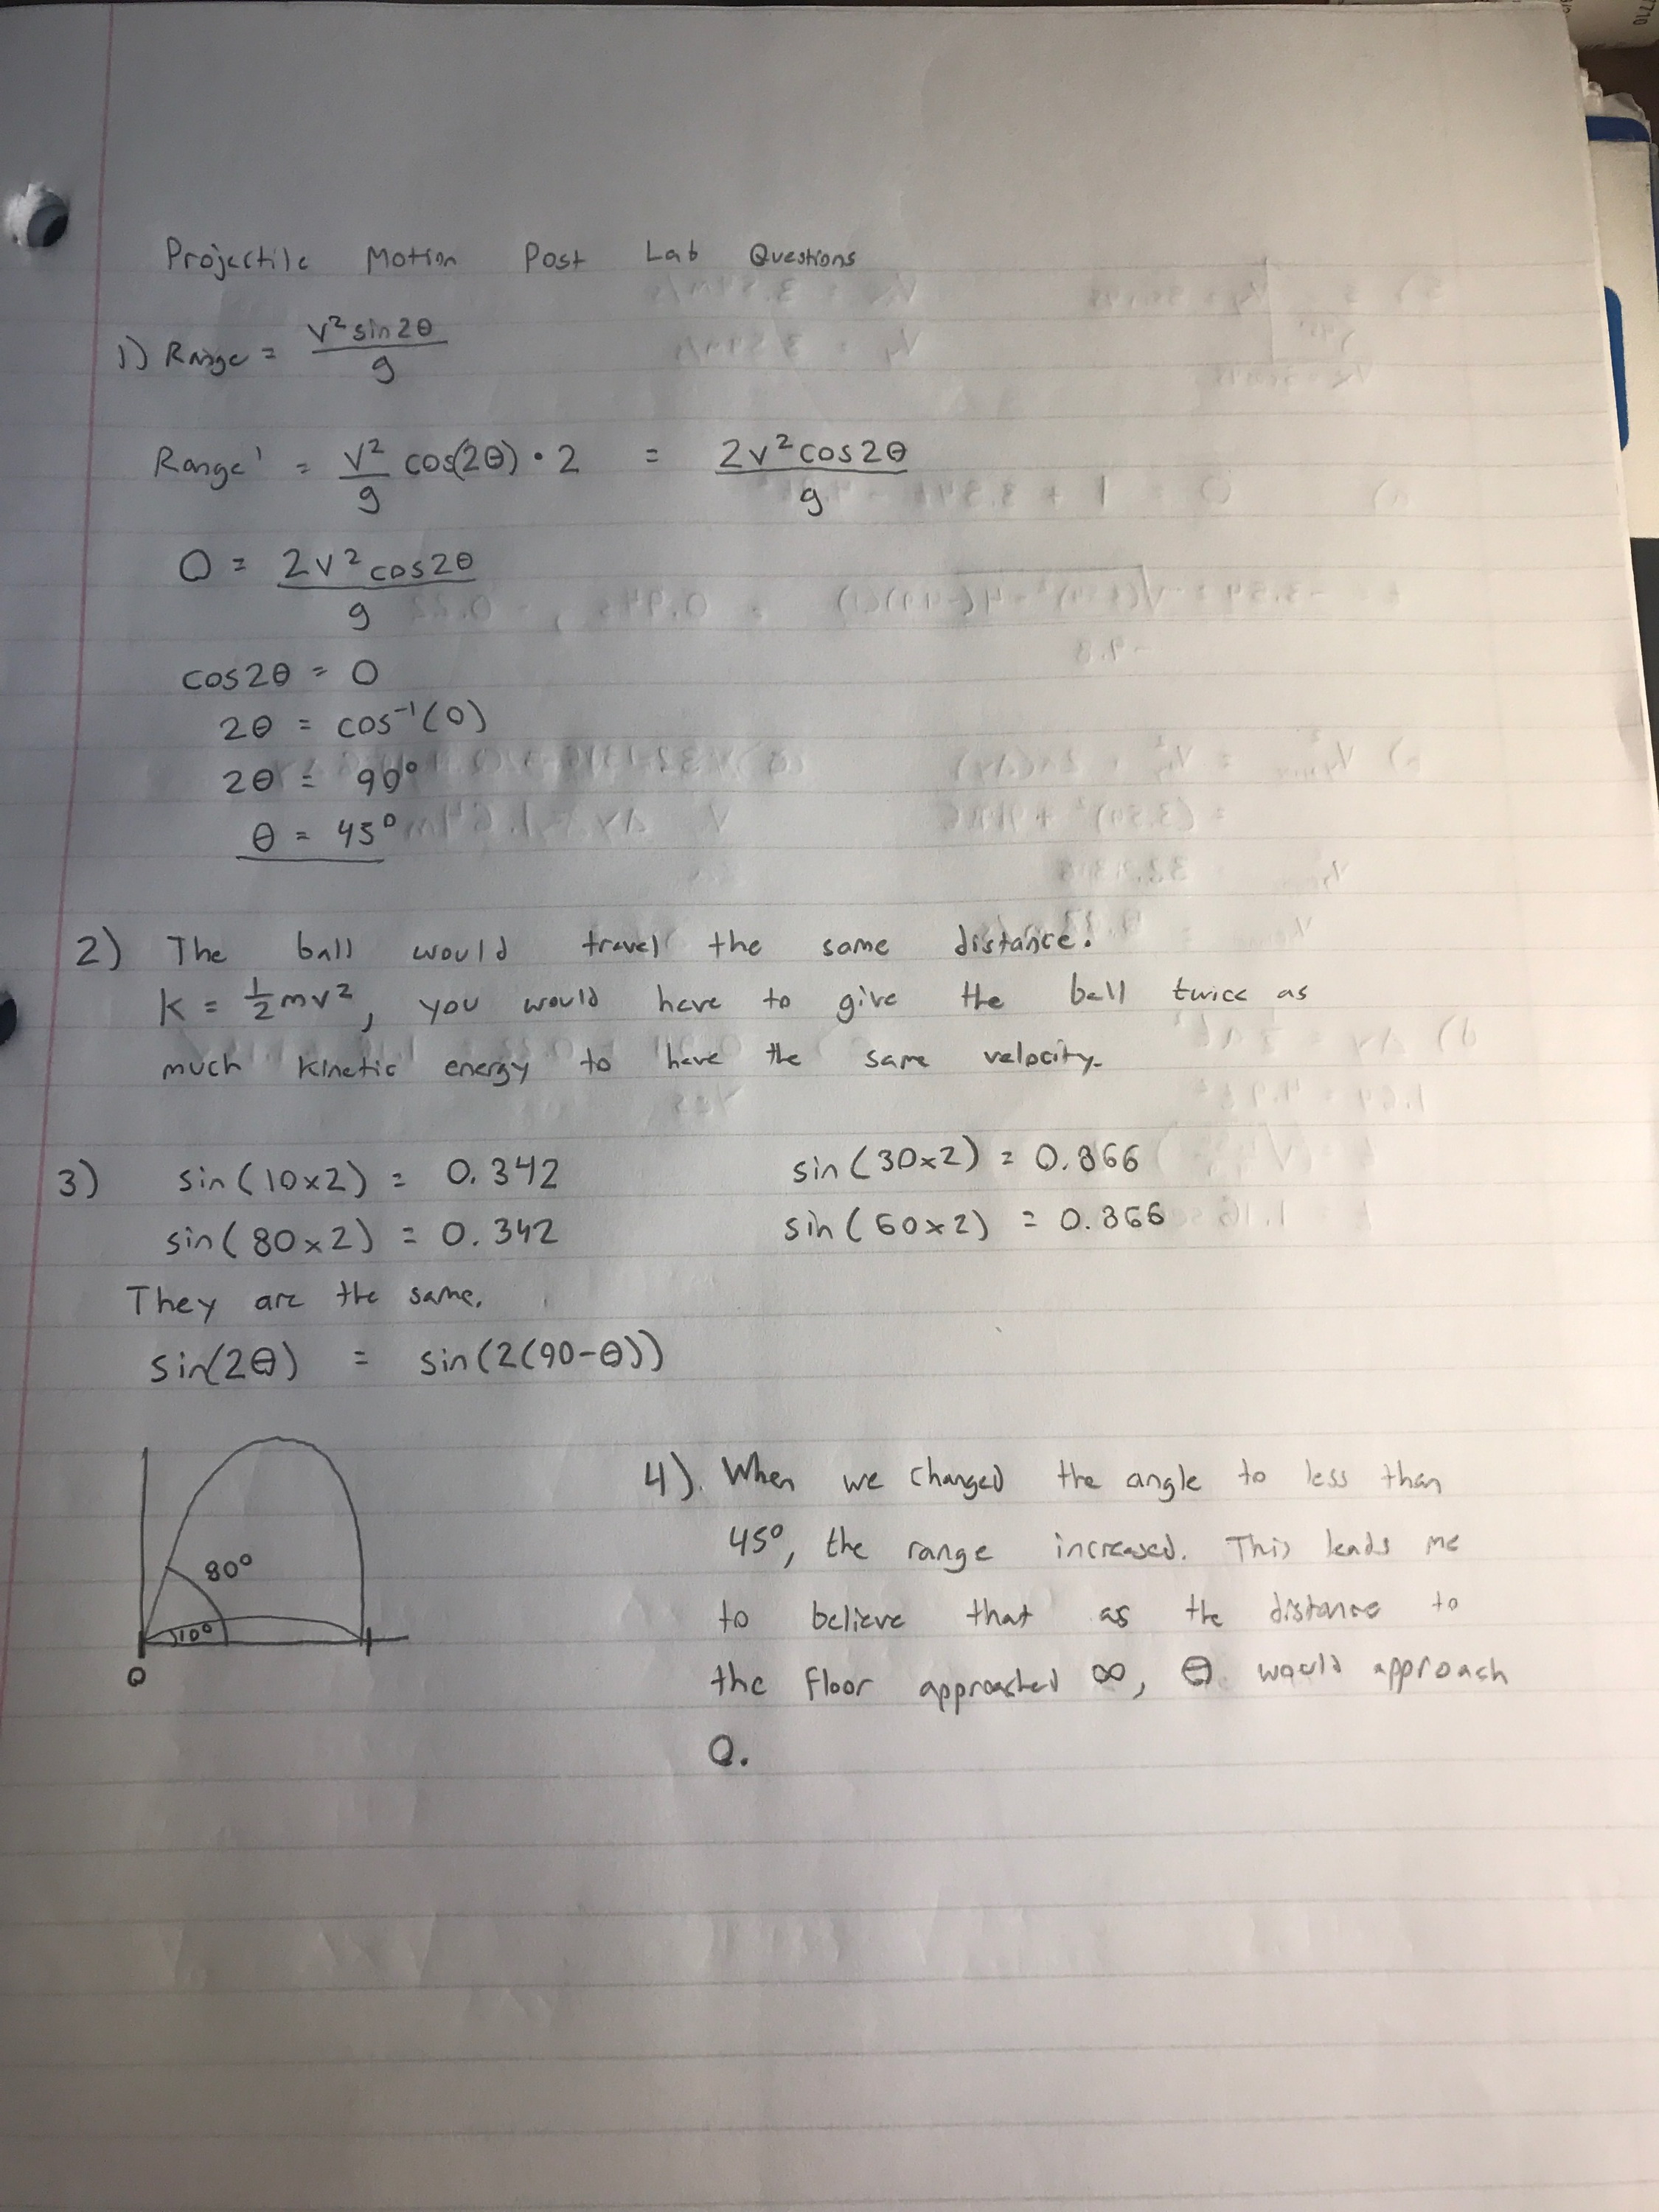 Projectile Motion Post Lab Questions
1) Range = v² sin2θ / g
Range' = v²/g cos(2θ) · 2 = 2v² cos2θ / g
0 = 2v² cos2θ / g
cos2θ = 0
2θ = cos⁻¹(0)
2θ = 90°
θ = 45°
2) The ball would travel the same distance.
K = ½mv², you would have to give the ball twice as
much kinetic energy to have the same velocity.
3) sin(10x2) = 0.342 sin(30x2) = 0.866
sin(80x2) = 0.342 sin(60x2) = 0.866
They are the same.
sin(2θ) = sin(2(90-θ))
80°
10°
0
4). When we changed the angle to less than
45°, the range increased. This leads me
to believe that as the distance to
the floor approached ∞, θ would approach
0.